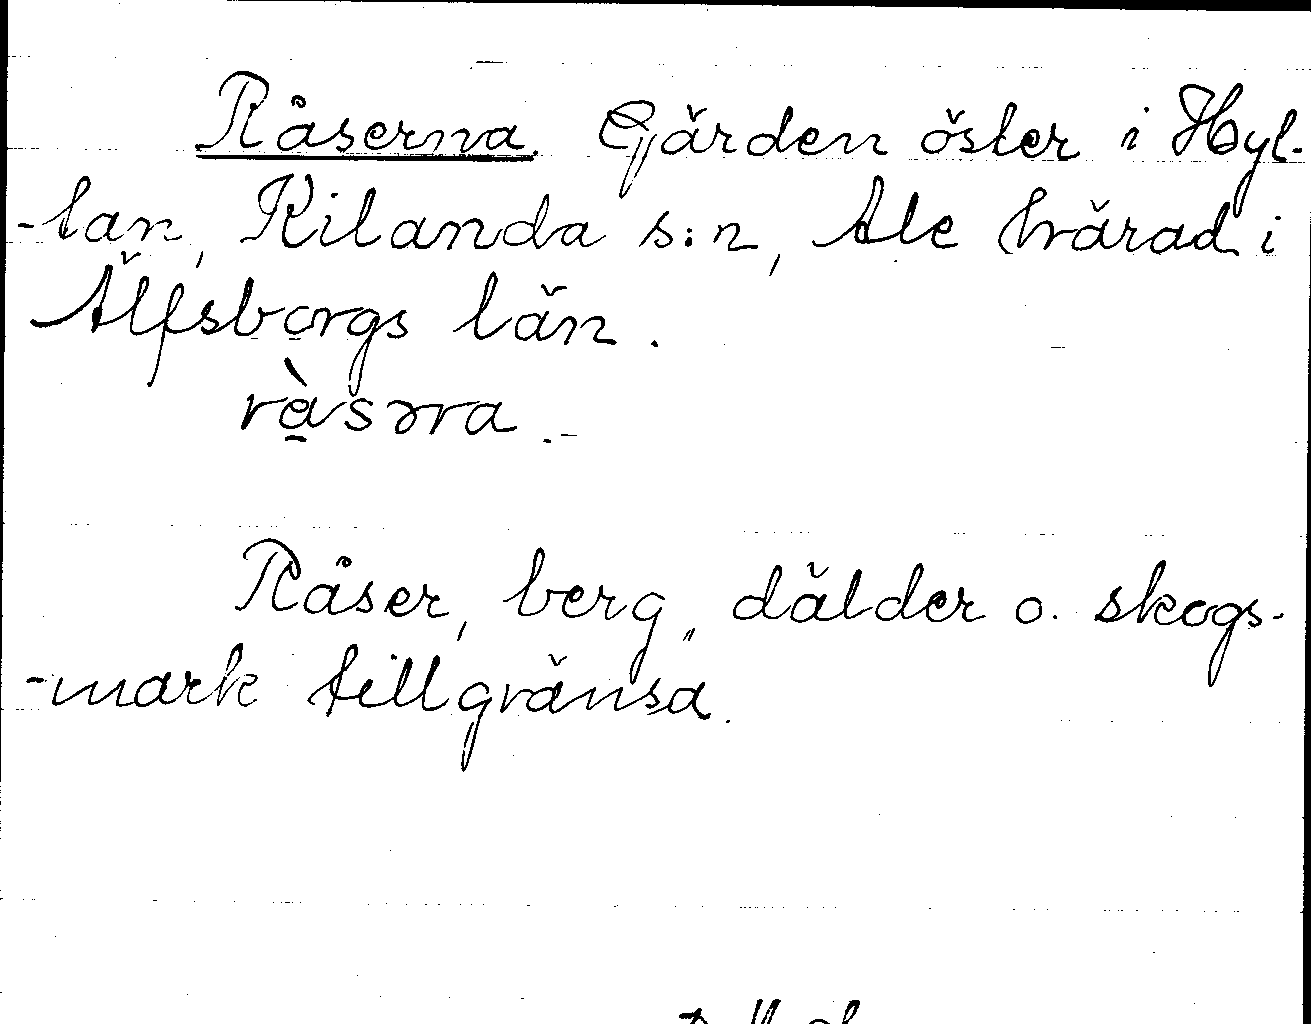 Råserna. Gärden öster i Hyl-
-tan, Kilanda s:n, Ale härad i
Älfsborgs län.
Råser, berg, dälder o. skogs-
-mark tillgränsa.